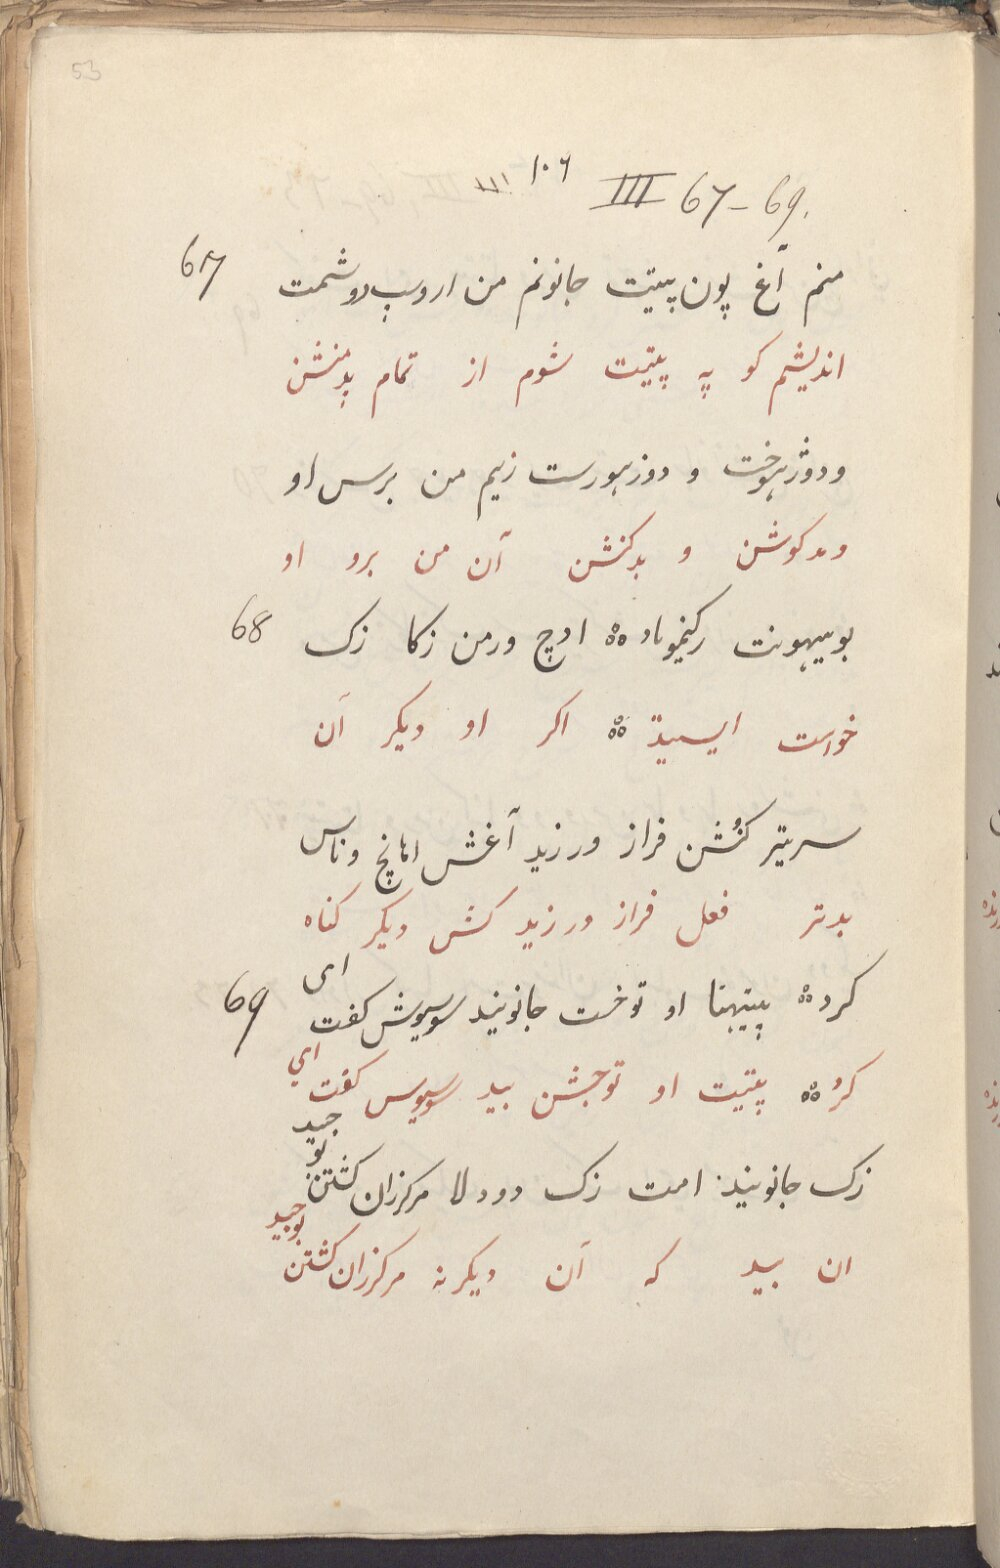 53
III ١٠٦ III 67-69.
منم آغ پون پتیت جانونم من اروسپ دوشمت 67
اندیشم کو په پتیت شوم از تمام بدمنشن
ودوژهوخت و دوزهورست زیم من برس او
وبدکوشن و بدکنشن آن من برو او
اوچ ورمن زکا زک 68
خواست ایستید اکر او دیکر آن
سریتر کنشن فراز ورزید آغش امانچ وناس
بدتر فعل فراز ورزید کش دیکر کناه
کرد پتیهنا او توخت جانونید سوسیوش کفت ای 69
کرد پتیت او توجشن بید سوسیوس کفت ای
زک جانونید امت زک دود لا مرکرزان کشتن توجید
ان بید که آن دیکر نه مرکرزان کشتن توجید